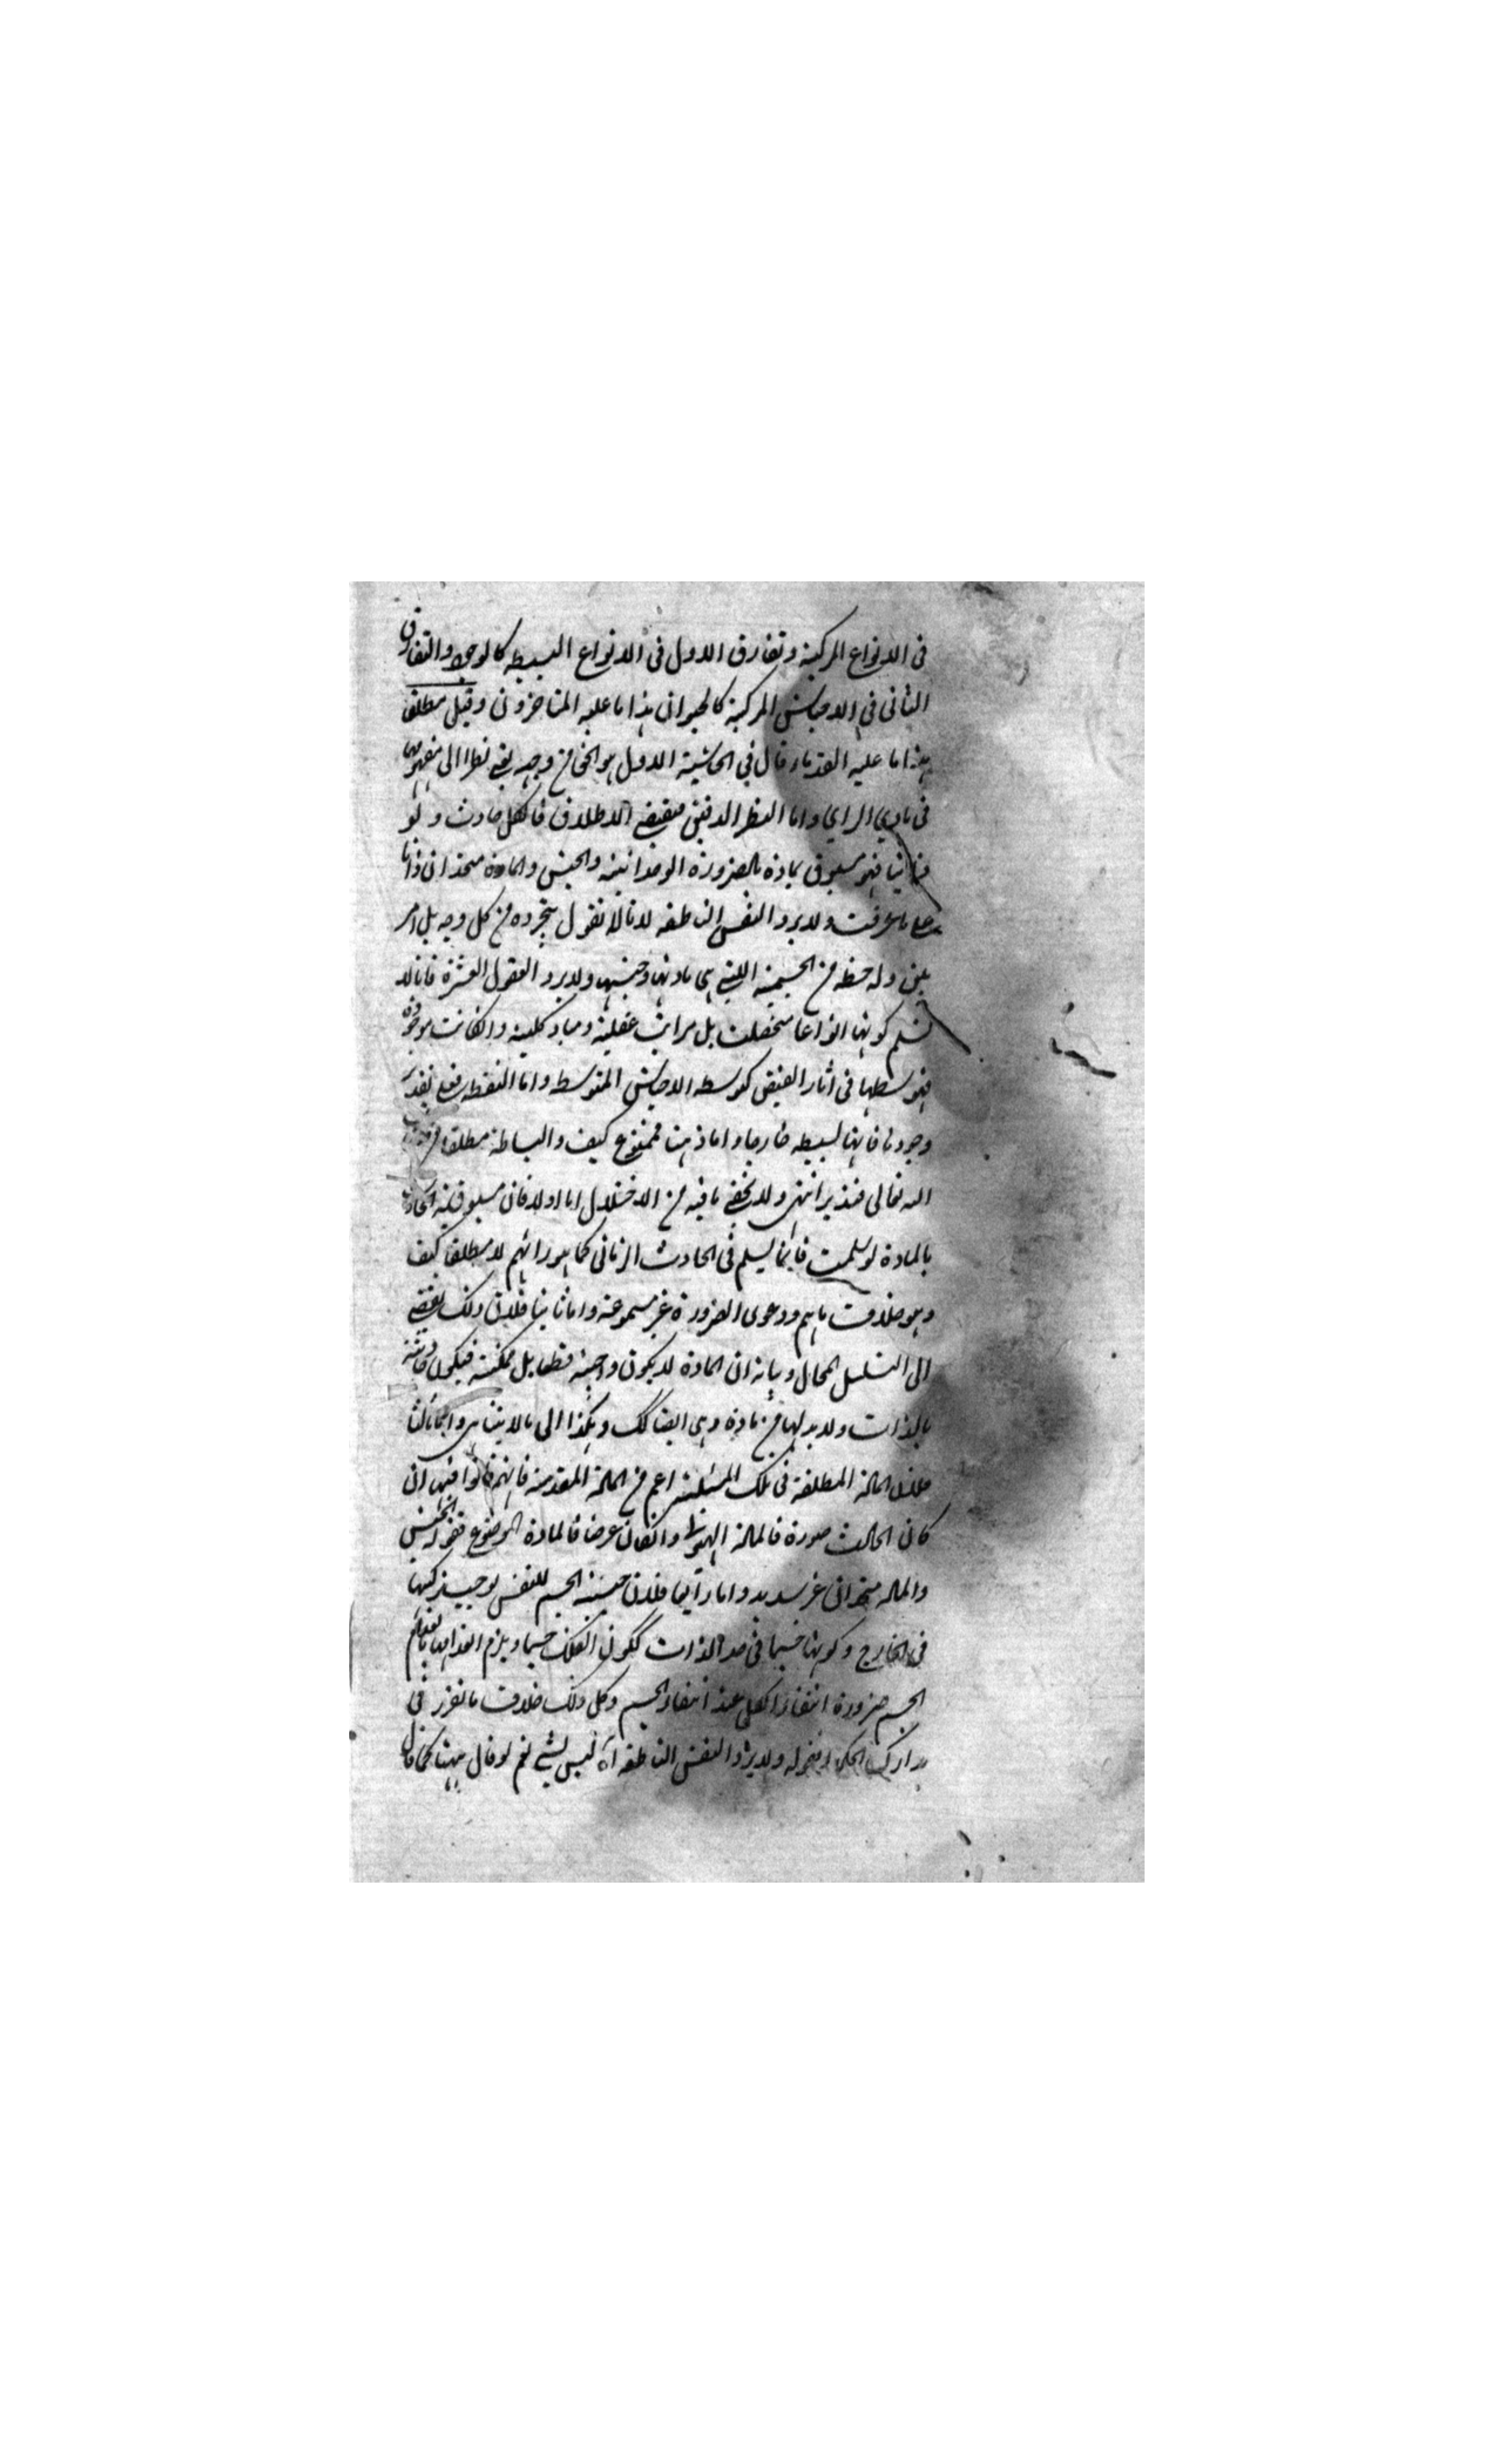 فى الانواع المركبة وتفارق الاول فى الانواع البسيطه كالوجود والتفارق
الثانى فى الاجناس المركبة كالحيوان هذا ما عليه المتاخرون وقيل مطلقا
هذا ما عليه القدماء قال فى الحاشية الاول هو الحق من وجه يعنى نظرا الى مفهومهما
فى بادي الراي واما النظر الدقيق فيقتضى الاطلاق فالكل حادث ولو
ذاتيا فهو مسبوق بمادة بالضرورة الوجدانية والجنس والمادة متحدان ذاتا
على ما عرفت ولا يرد النفس الناطقه لانا لا نقول بتجرده من كل وجه بل امر
بين وله حظ من الجسمية اللتى هى مادتها وجنسها ولا يرد العقول العشرة فانا لا
نسلم كونها انواعا متحصلة بل مراتب عقلية ومباد كلية وان كانت موجودة
فتوسطها فى آثار الفيض كوسط الاجناس المتوسط واما النقطه فعلى تقدير
وجودها فانها بسيطه خارجا واما ذهنا فممنوع كيف والبساطة مطلقا من
الله تعالى فتدبر انتهى ولا يخفى ما فيه من الاختلال اما اولا فان مسبوقية الحادث
بالمادة لو سلمت فانما يسلم فى الحادث الزمانى كما هو رائهم لا مطلقا كيف
وهو خلاف ودعوى الضرورة غير مسموعة واما ثانيا فلان ذلك يفضى
الى التسلسل المحال وبيانه ان المادة لا يكون واجبة قطعا بل ممكنة فيكون حادثة
بالذات ولا بد لها من مادة وهى ايضا كك وهكذا الى ما لا يتناهى واما ثالثا
فلان المادة المطلقة فى تلك المسئلة اعم من المادة المقدمة فانهم قالوا فيها ان
كان الحادث صورة فالمادة الهيولى وان كان عرضا فالمادة الموضوع فقوله الجنس
والمادة متحدان غير سديد واما رابعا فلان جنسية الجسم للنفس يوجب تركبها
فى الخارج وكونها جسما فى حد الذات ككون الفلك جسما ويلزم انعدامها بانعدام
الجسم ضرورة انتفاء الكل عند انتفاء الجسم وكل ذلك خلاف ما تقرر فى
مدارك الحكماء فقوله ولا يرد النفس الناطقه آه ليس بشئ نعم لو قال ههنا كما قال